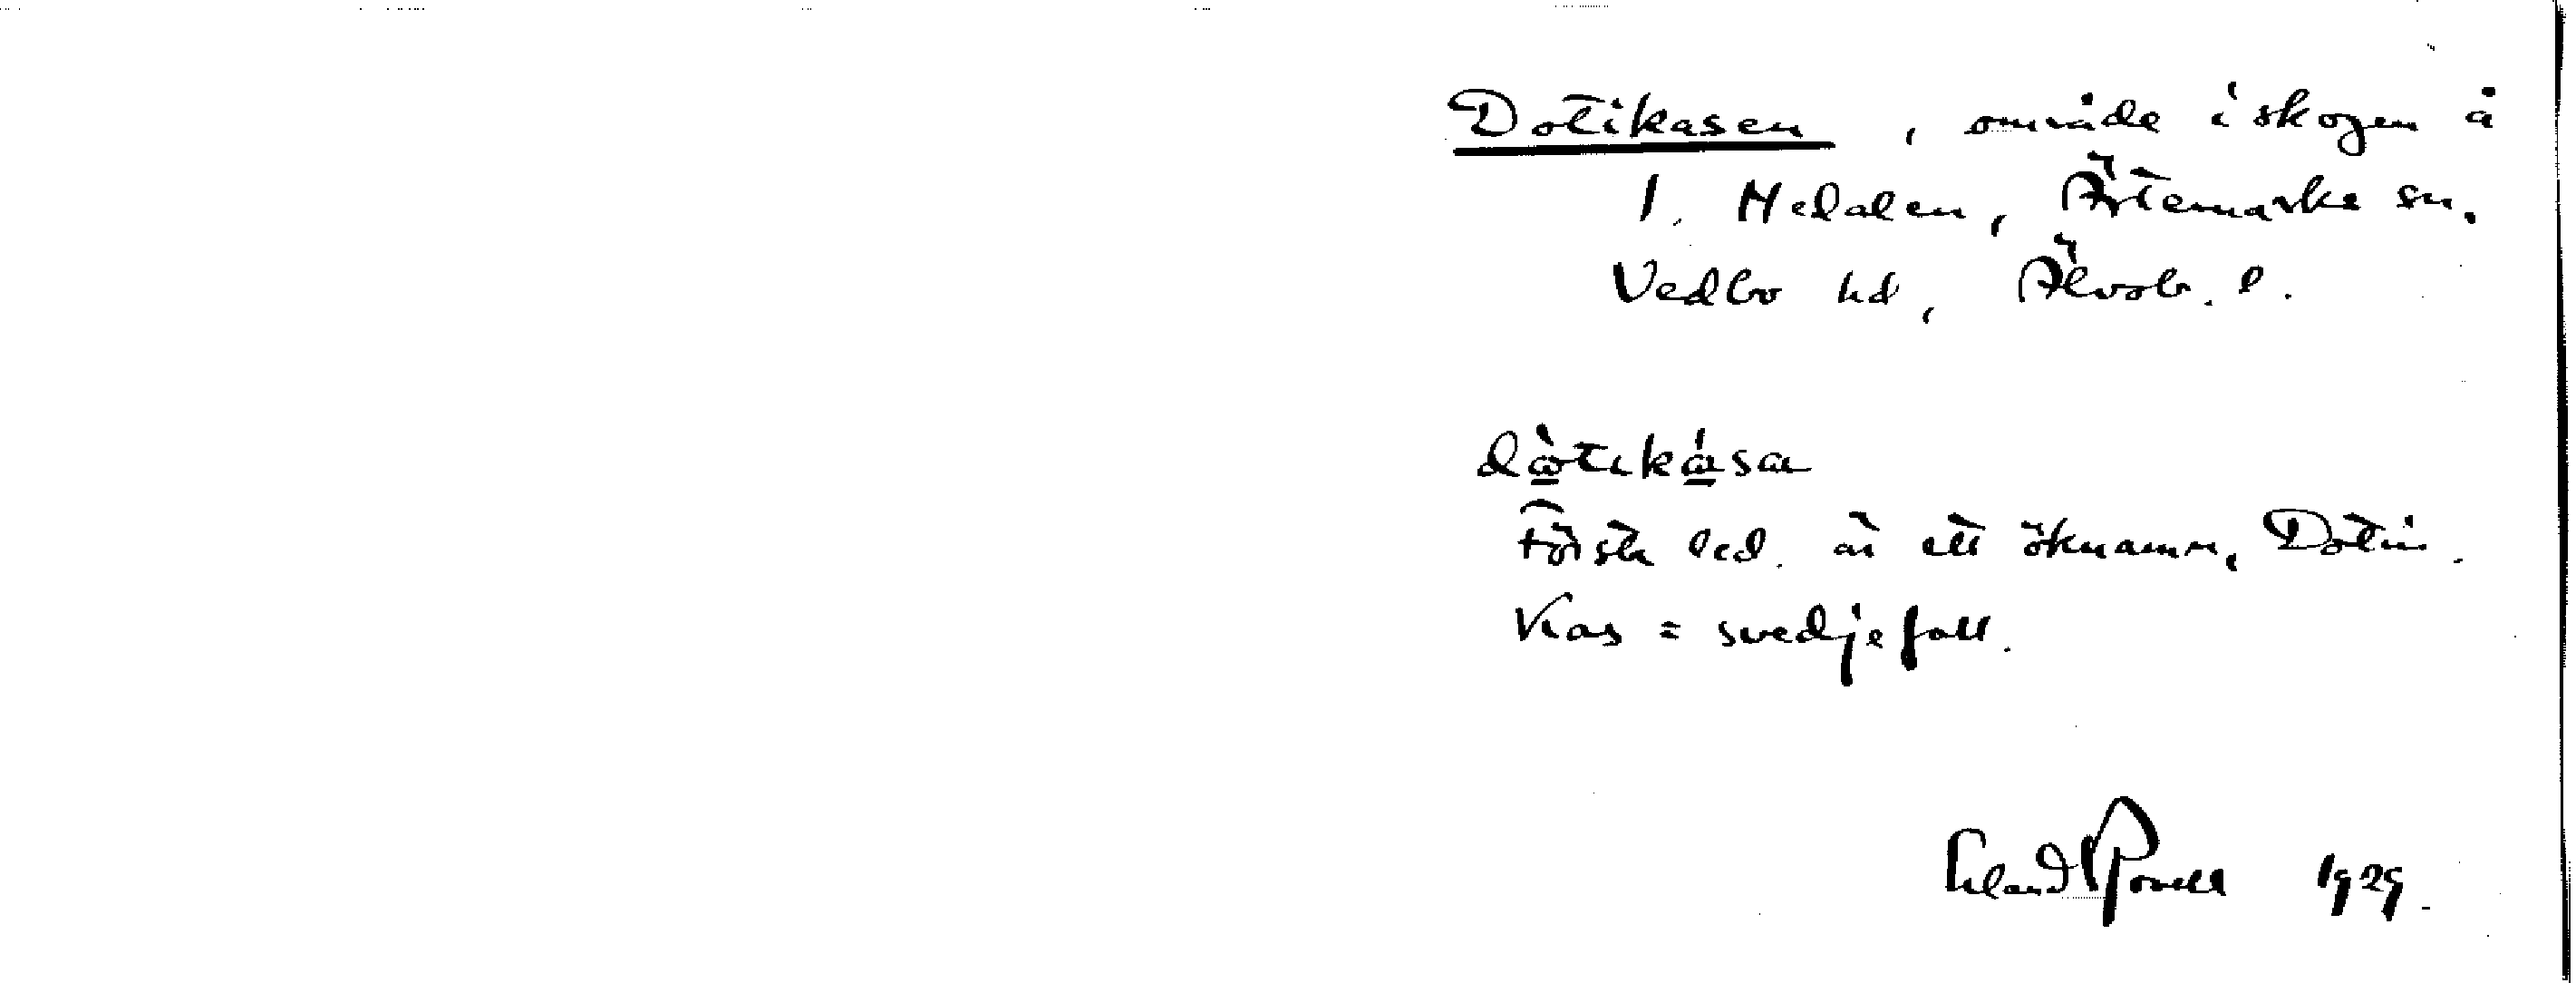 Dotikasen, område i skogen å
1. Hedalen, Ärtemarks sn.
Vedbo hd, Älvsb. l.
dò̱tıká̱sa
Första led. är ett öknamn, Dotin.
Kas = svedjefall.
Erland Rosell 1929.